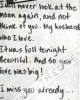 I will never look at the
moon again, and not
think of you. My husband
who I love.
It was full tonight
beautiful. And so you
love was big!
I miss you already...